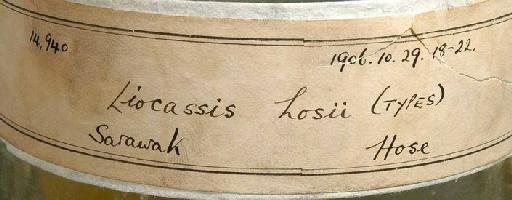 14,940 1906.10.29.18-22.
Liocassis hosii (TYPES)
Sarawak Hose